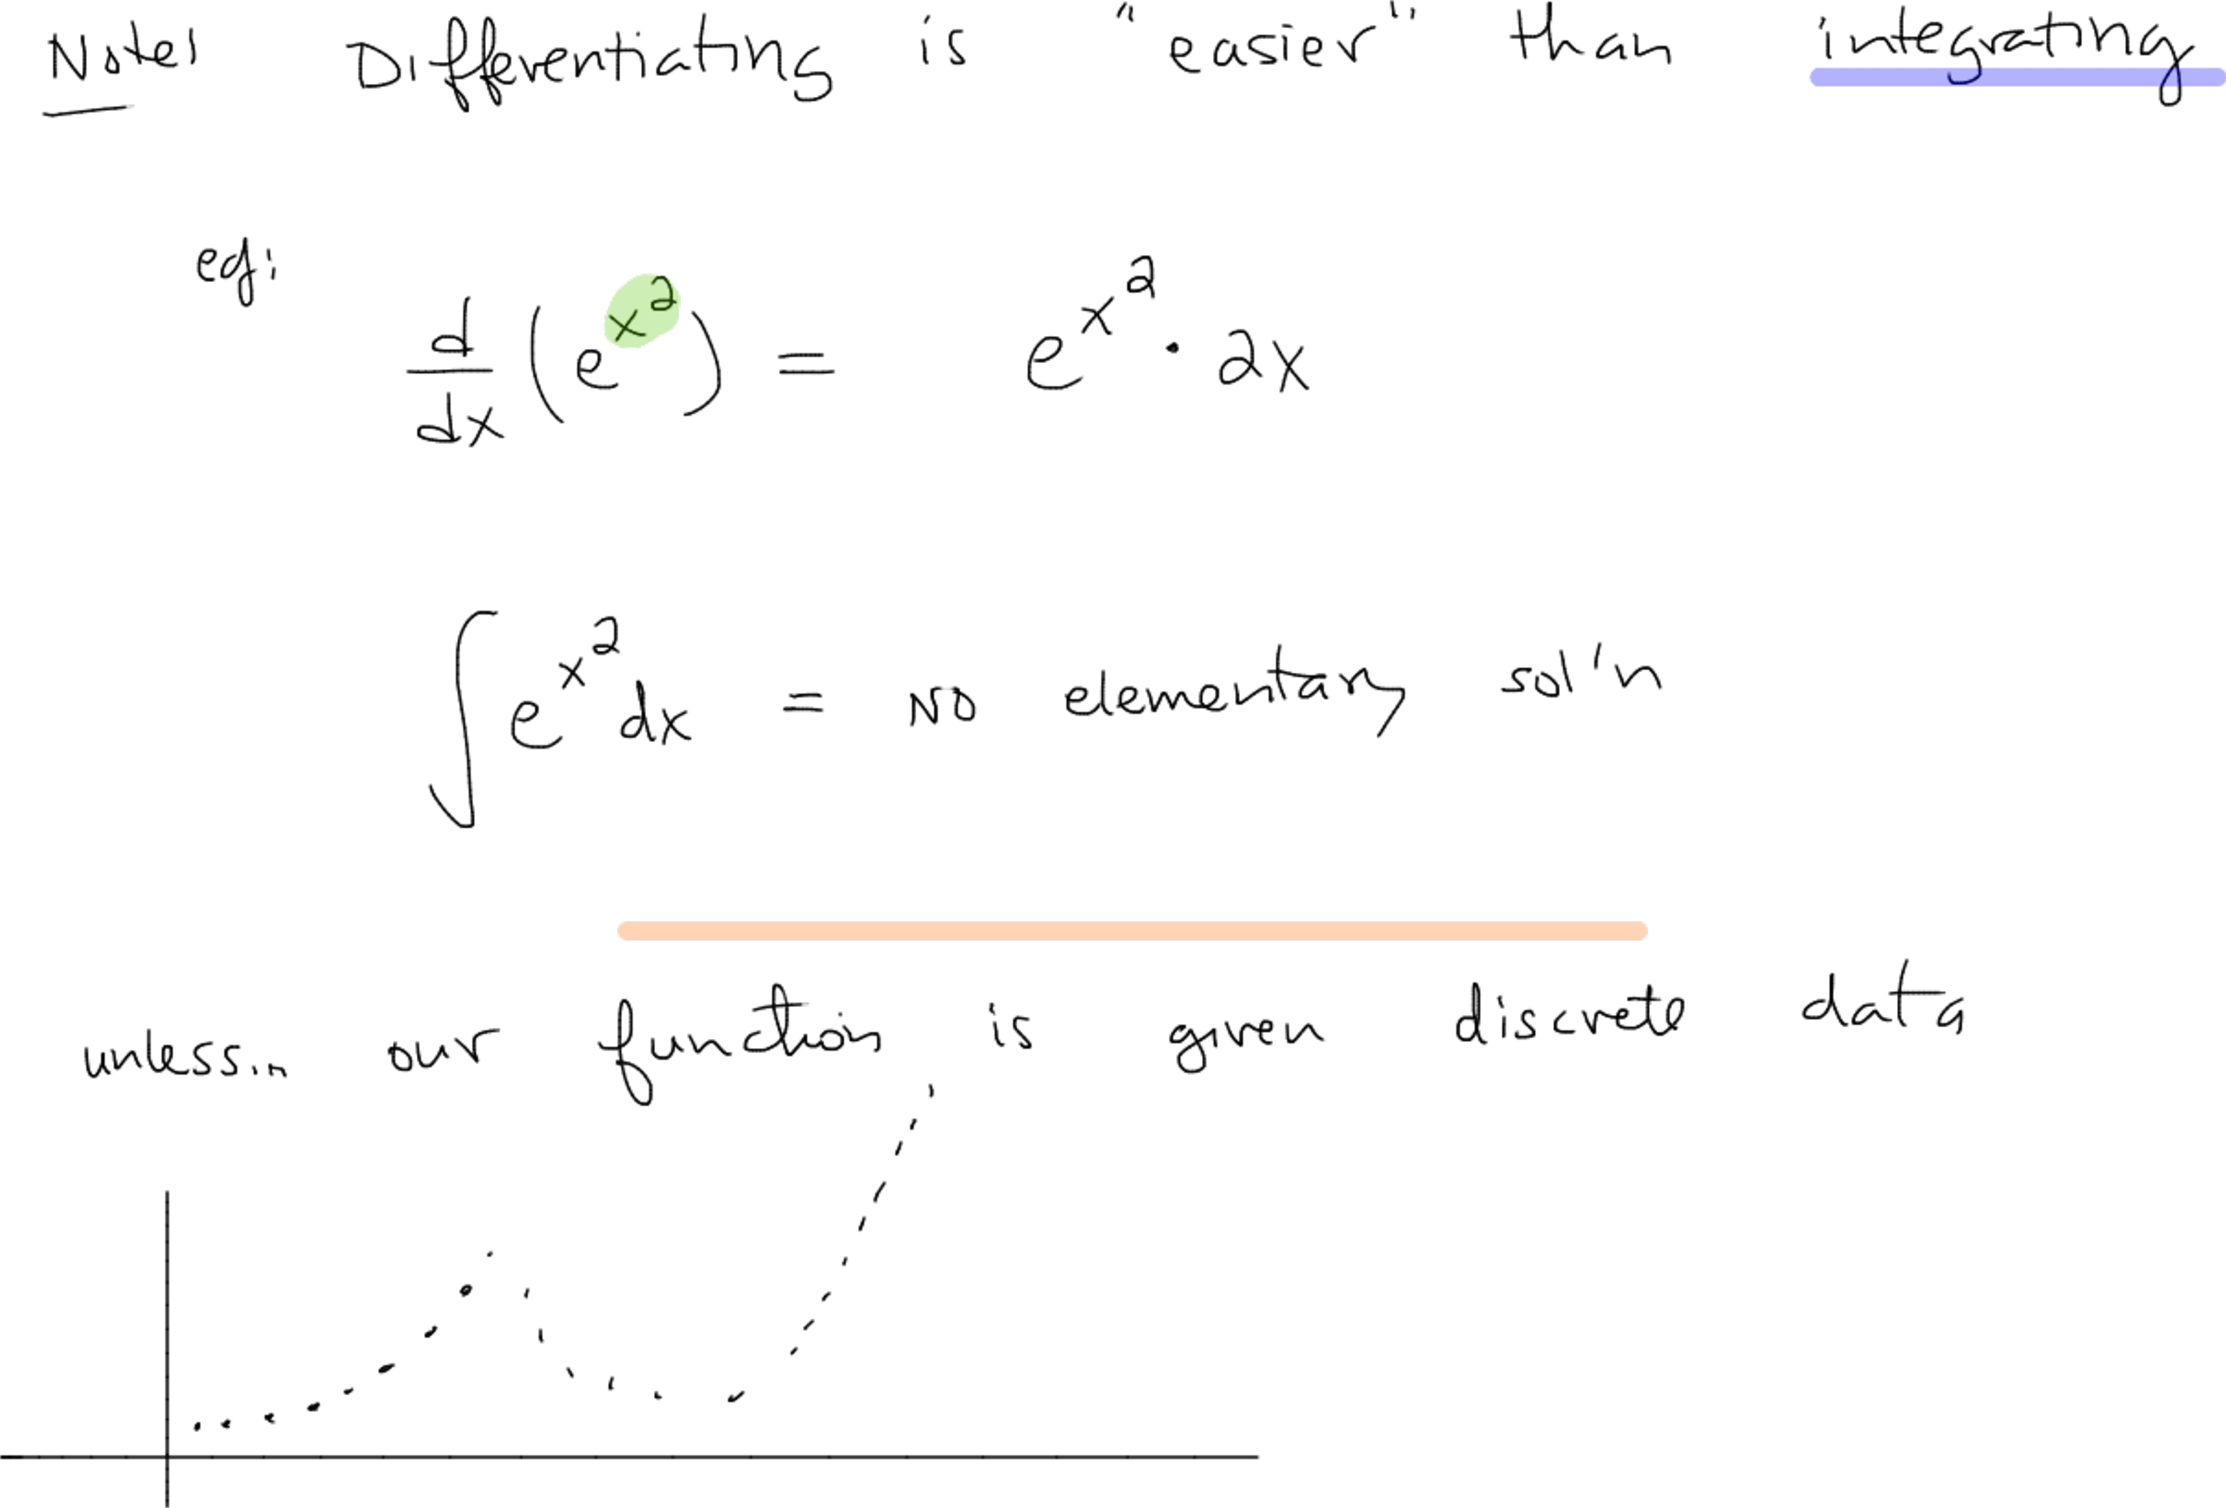 Note: Differentiating is "easier" than integrating
eg:
d/dx (e^x^2) = e^x^2 · 2x
∫ e^x^2 dx = no elementary sol'n
unless... our function is given discrete data